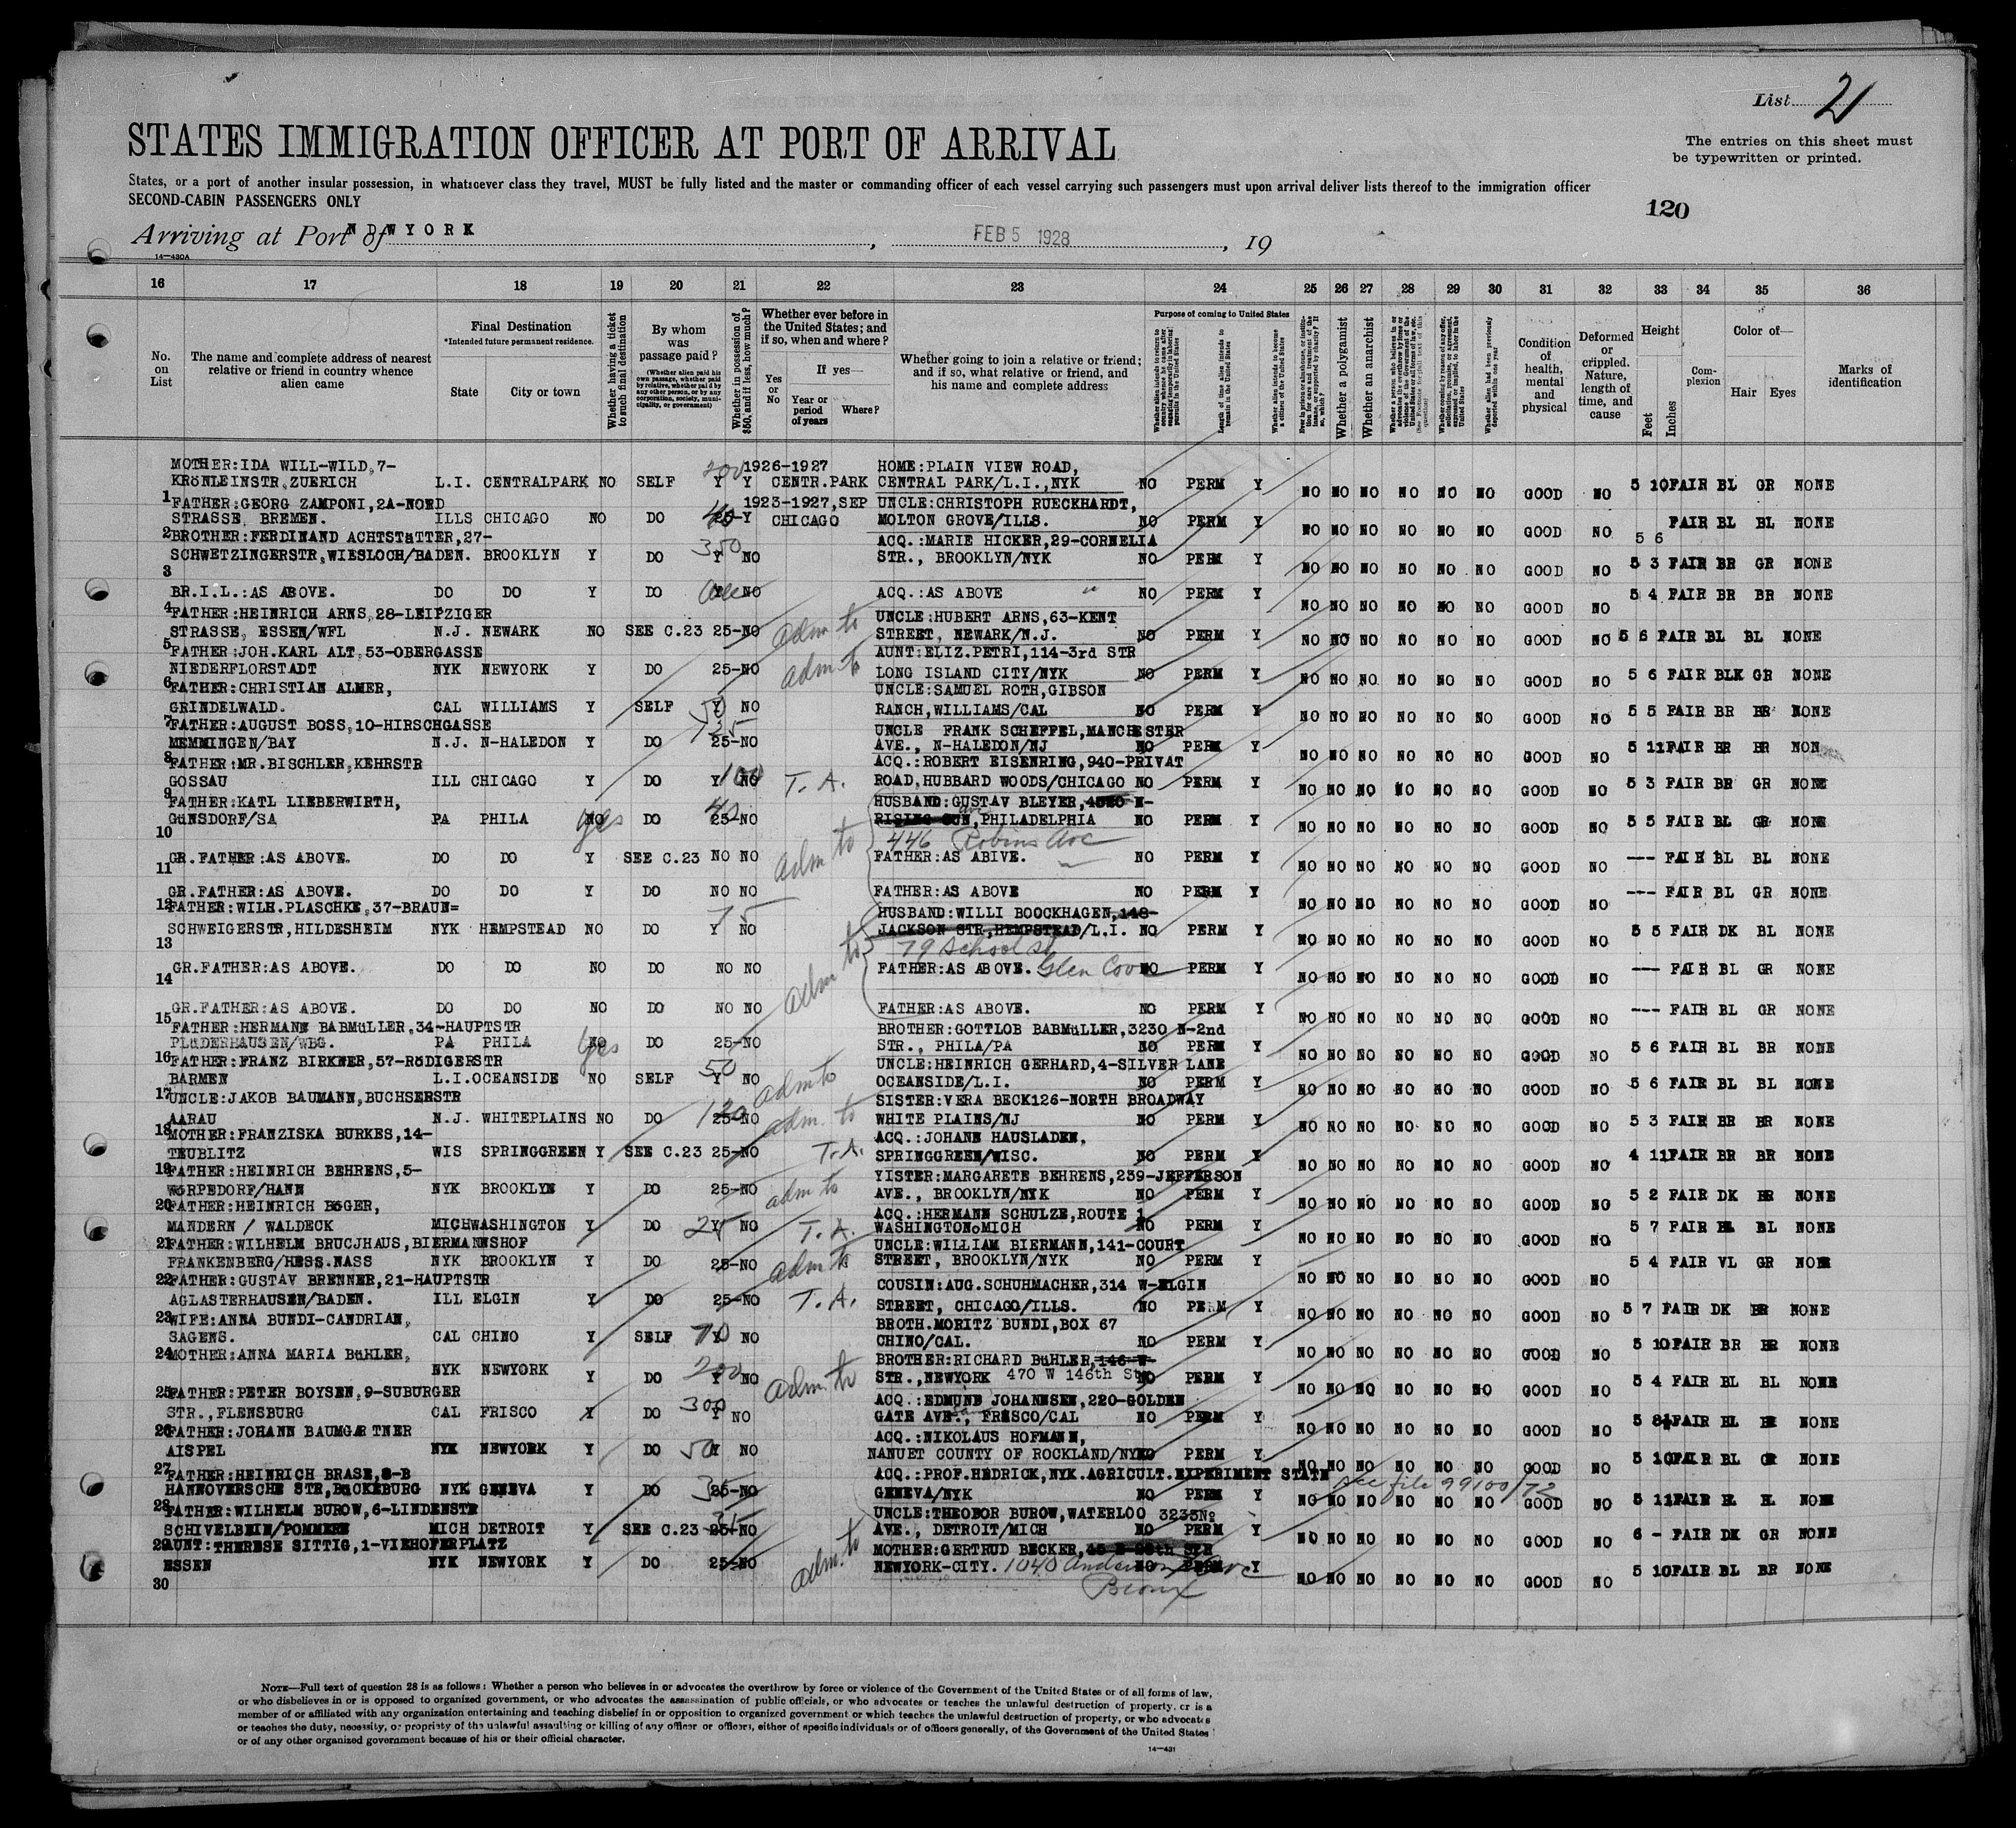 List 21
STATES IMMIGRATION OFFICER AT PORT OF ARRIVAL
The entries on this sheet must
be typewritten or printed.
States, or a port of another insular possession, in whatsoever class they travel, MUST be fully listed and the master or commanding officer of each vessel carrying such passengers must upon arrival deliver lists thereof to the immigration officer
SECOND-CABIN PASSENGERS ONLY
120
Arriving at Port of YORK, FEB 5 1928, 19
14-430A
16 17 18 19 20 21 22 23 24 25 26 27 28 29 30 31 32 33 34 35 36
No. on List
The name and complete address of nearest relative or friend in country whence alien came
Final Destination
*Intended future permanent residence.
State City or town
Whether having a ticket to such final destination
By whom was passage paid?
(Whether alien paid his own passage, whether paid by relative, whether paid by any other person, or by any corporation, society, municipality, or government)
Whether in possession of $50, and if less, how much?
Whether ever before in the United States; and if so, when and where?
Yes or No
If yes—
Year or period of years
Where?
Whether going to join a relative or friend; and if so, what relative or friend, and his name and complete address
Purpose of coming to United States
Whether a polygamist
Whether an anarchist
Condition of health, mental and physical
Deformed or crippled. Nature, length of time, and cause
Height
Feet Inches
Complexion
Color of—
Hair Eyes
Marks of identification
MOTHER:IDA WILL-WILD,7- 200 1926-1927 HOME:PLAIN VIEW ROAD,
1 KRöNLEINSTR,ZUERICH L.I. CENTRALPARK NO SELF Y Y CENTR.PARK CENTRAL PARK/L.I.,NYK NO PERM Y NO NO NO NO NO NO GOOD NO 5 10 FAIR BL GR NONE
FATHER:GEORG ZAMPONI,2A-NORD 1923-1927,SEP UNCLE:CHRISTOPH RUECKHARDT,
2 STRASSE, BREMEN. ILLS CHICAGO NO DO 40 Y CHICAGO MOLTON GROVE/ILLS. NO PERM Y NO NO NO NO NO NO GOOD NO 5 6 FAIR BL BL NONE
BROTHER:FERDINAND ACHTSTäTTER,27- 350 ACQ.:MARIE HICKER,29-CORNELIA
3 SCHWETZINGERSTR,WIESLOCH/BADEN. BROOKLYN Y DO Y NO STR., BROOKLYN/NYK NO PERM Y NO NO NO NO NO NO GOOD NO 5 3 FAIR BR GR NONE
4 BR.I.L.:AS ABOVE. DO DO Y DO NO ACQ.:AS ABOVE " NO PERM Y NO NO NO NO NO NO GOOD NO 5 4 FAIR BR BR NONE
FATHER:HEINRICH ARNS,28-LEIPZIGER UNCLE:HUBERT ARNS,63-KENT
5 STRASSE, ESSEN/WFL N.J. NEWARK NO SEE C.23 25-NO adm to STREET, NEWARK/N.J. NO PERM Y NO NO NO NO NO NO GOOD NO 5 6 FAIR BL BL NONE
FATHER:JOH.KARL ALT,53-OBERGASSE AUNT:ELIZ.PETRI,114-3rd STR
6 NIEDERFLORSTADT NYK NEWYORK Y DO 25-NO adm to LONG ISLAND CITY/NYK NO PERM Y NO NO NO NO NO NO GOOD NO 5 6 FAIR BLK GR NONE
FATHER:CHRISTIAN ALMER, UNCLE:SAMUEL ROTH,GIBSON
7 GRINDELWALD. CAL WILLIAMS Y SELF 50 Y NO RANCH,WILLIAMS/CAL NO PERM Y NO NO NO NO NO NO GOOD NO 5 5 FAIR BR BR NONE
FATHER:AUGUST BOSS,10-HIRSCHGASSE 125 UNCLE FRANK SCHEFFEL,MANCHESTER
8 MEMMINGEN/BAY N.J. N-HALEDON Y DO 25-NO AVE., N-HALEDON/NJ NO PERM Y NO NO NO NO NO NO GOOD NO 5 11 FAIR BR BR NON
FATHER:MR.BISCHLER,KEHRSTR ACQ.:ROBERT EISENRING,940-PRIVAT
9 GOSSAU ILL CHICAGO Y DO Y NO 100 T.A. ROAD,HUBBARD WOODS/CHICAGO NO PERM Y NO NO NO NO NO NO GOOD NO 5 3 FAIR BR GR NONE
FATHER:KATL LIEBERWIRTH, 40 HUSBAND:GUSTAV BLEYER,4520 N-
10 GüNSDORF/SA PA PHILA NO yes DO 25-NO RISING SUN,PHILADELPHIA NO PERM Y NO NO NO NO NO NO GOOD NO 5 5 FAIR BL GR NONE
446 Robins Ave
11 GR.FATHER:AS ABOVE. DO DO Y SEE C.23 NO NO adm to FATHER:AS ABIVE. NO PERM Y NO NO NO NO NO NO GOOD NO --- FAIR BL BL NONE
12 GR.FATHER:AS ABOVE. DO DO Y DO NO NO FATHER:AS ABOVE NO PERM Y NO NO NO NO NO NO GOOD NO --- FAIR BL GR NONE
FATHER:WILH.PLASCHKE,37-BRAUN= 75 HUSBAND:WILLI BOOCKHAGEN,148-
13 SCHWEIGERSTR,HILDESHEIM NYK HEMPSTEAD NO DO Y NO JACKSON STR,HEMPSTEAD/L.I. NO PERM Y NO NO NO NO NO NO GOOD NO 5 5 FAIR DK BL NONE
79 School St
14 GR.FATHER:AS ABOVE. DO DO NO DO NO NO adm to FATHER:AS ABOVE. Glen Cove NO PERM Y NO NO NO NO NO NO GOOD NO --- FAIR BL GR NONE
15 GR.FATHER:AS ABOVE. DO DO NO DO NO NO FATHER:AS ABOVE. NO PERM Y NO NO NO NO NO NO GOOD NO --- FAIR BL GR NONE
FATHER:HERMANN BABMüLLER,34-HAUPTSTR BROTHER:GOTTLOB BABMüLLER,3230 N-2nd
16 PLüDERHAUSEN/WBG. PA PHILA NO yes DO 25-NO STR., PHILA/PA NO PERM Y NO NO NO NO NO NO GOOD NO 5 6 FAIR BL BR NONE
FATHER:FRANZ BIRKNER,57-RöDIGERSTR 50 UNCLE:HEINRICH GERHARD,4-SILVER LANE
17 BARMEN L.I.OCEANSIDE NO SELF Y NO adm to OCEANSIDE/L.I. NO PERM Y NO NO NO NO NO NO GOOD NO 5 6 FAIR BL BL NONE
UNCLE:JAKOB BAUMANN,BUCHSERSTR SISTER:VERA BECK126-NORTH BROADWAY
18 AARAU N.J. WHITEPLAINS NO DO 120 25-NO adm. to WHITE PLAINS/NJ NO PERM Y NO NO NO NO NO NO GOOD NO 5 3 FAIR BR BR NONE
MOTHER:FRANZISKA BURKES,14- ACQ.:JOHANN HAUSLADEN,
19 TEUBLITZ WIS SPRINGGREEN Y SEE C.23 25-NO T.A. SPRINGGREEN/WISC. NO PERM Y NO NO NO NO NO NO GOOD NO 4 11 FAIR BR BR NONE
FATHER:HEINRICH BEHRENS,5- YISTER:MARGARETE BEHRENS,239-JEFFERSON
20 WöRPEDORF/HANN NYK BROOKLYN Y DO 25-NO adm to AVE., BROOKLYN/NYK NO PERM Y NO NO NO NO NO NO GOOD NO 5 2 FAIR DK BR NONE
FATHER:HEINRICH BöGER, ACQ.:HERMANN SCHULZE,ROUTE 1
21 MANDERN / WALDECK MICHWASHINGTON Y DO 25 Y NO T.A. WASHINGTON MICH NO PERM Y NO NO NO NO NO NO GOOD NO 5 7 FAIR BL BL NONE
FATHER:WILHELM BRUCJHAUS,BIERMANNSHOF UNCLE:WILLIAM BIERMANN,141-COURT
22 FRANKENBERG/HESS.NASS NYK BROOKLYN Y DO 25-NO adm to STREET, BROOKLYN/NYK NO PERM Y NO NO NO NO NO NO GOOD NO 5 4 FAIR VL GR NONE
FATHER:GUSTAV BRENNER,21-HAUPTSTR COUSIN:AUG.SCHUHMACHER,314 W-ELGIN
23 AGLASTERHAUSEN/BADEN. ILL ELGIN Y DO 25-NO T.A. STREET, CHICAGO/ILLS. NO PERM Y NO NO NO NO NO NO GOOD NO 5 7 FAIR DK BR NONE
WIFE:ANNA BUNDI-CANDRIAN, BROTH.MORITZ BUNDI,BOX 67
24 SAGENS. CAL CHINO Y SELF 70 Y NO CHINO/CAL. NO PERM Y NO NO NO NO NO NO GOOD NO 5 10 FAIR BR BR NONE
MOTHER:ANNA MARIA BüHLER, 200 BROTHER:RICHARD BüHLER,146-W-
25 NYK NEWYORK Y DO Y NO adm. to STR.,NEWYORK 470 W 146th St NO PERM Y NO NO NO NO NO NO GOOD NO 5 4 FAIR BL BL NONE
FATHER:PETER BOYSEN,9-SUBURGER 300 ACQ.:EDMUND JOHANNSEN,220-GOLDEN
26 STR.,FLENSBURG CAL FRISCO Y DO Y NO GATE AVE., FRISCO/CAL NO PERM Y NO NO NO NO NO NO GOOD NO 5 8 FAIR BL BR NONE
FATHER:JOHANN BAUMGÆRTNER ACQ.:NIKOLAUS HOFMANN,
27 AISPEL NYK NEWYORK Y DO 50 Y NO NANUET COUNTY OF ROCKLAND/NYK NO PERM Y NO NO NO NO NO NO GOOD NO 5 10 FAIR BL GR NONE
FATHER:HEINRICH BRASE,8-B ACQ.:PROF.HEDRICK,NYK.AGRICULT.EXPERIMENT STATN
28 HANNOVERSCHE STR,BüCKEBURG NYK GENEVA Y DO 35 25-NO GENEVA/NYK NO PERM Y See file 99100/72 NO NO NO NO NO NO GOOD NO 5 11 FAIR BL BL NONE
FATHER:WILHELM BUROW,6-LINDENSTR UNCLE:THEODOR BUROW,WATERLOO 3233No
29 SCHIVELBEIN/POMMERN MICH DETROIT Y SEE C.23 25-NO AVE., DETROIT/MICH NO PERM Y NO NO NO NO NO NO GOOD NO 6 - FAIR DK GR NONE
AUNT:THERESE SITTIG,1-VIEHOFERPLATZ MOTHER:GERTRUD BECKER,
30 ESSEN NYK NEWYORK Y DO 25-NO adm. to NEWYORK-CITY. 1040 Anderson Ave NO PERM Y NO NO NO NO NO NO GOOD NO 5 10 FAIR BL BR NONE
Bronx
NOTE—Full text of question 28 is as follows: Whether a person who believes in or advocates the overthrow by force or violence of the Government of the United States or of all forms of law,
or who disbelieves in or is opposed to organized government, or who advocates the assassination of public officials, or who advocates or teaches the unlawful destruction of property, or is a
member of or affiliated with any organization entertaining and teaching disbelief in or opposition to organized government or which teaches the unlawful destruction of property, or who advocates
or teaches the duty, necessity, or propriety of the unlawful assaulting or killing of any officer or officers, either of specific individuals or of officers generally, of the Government of the United States
or of any other organized government because of his or their official character.
14-431